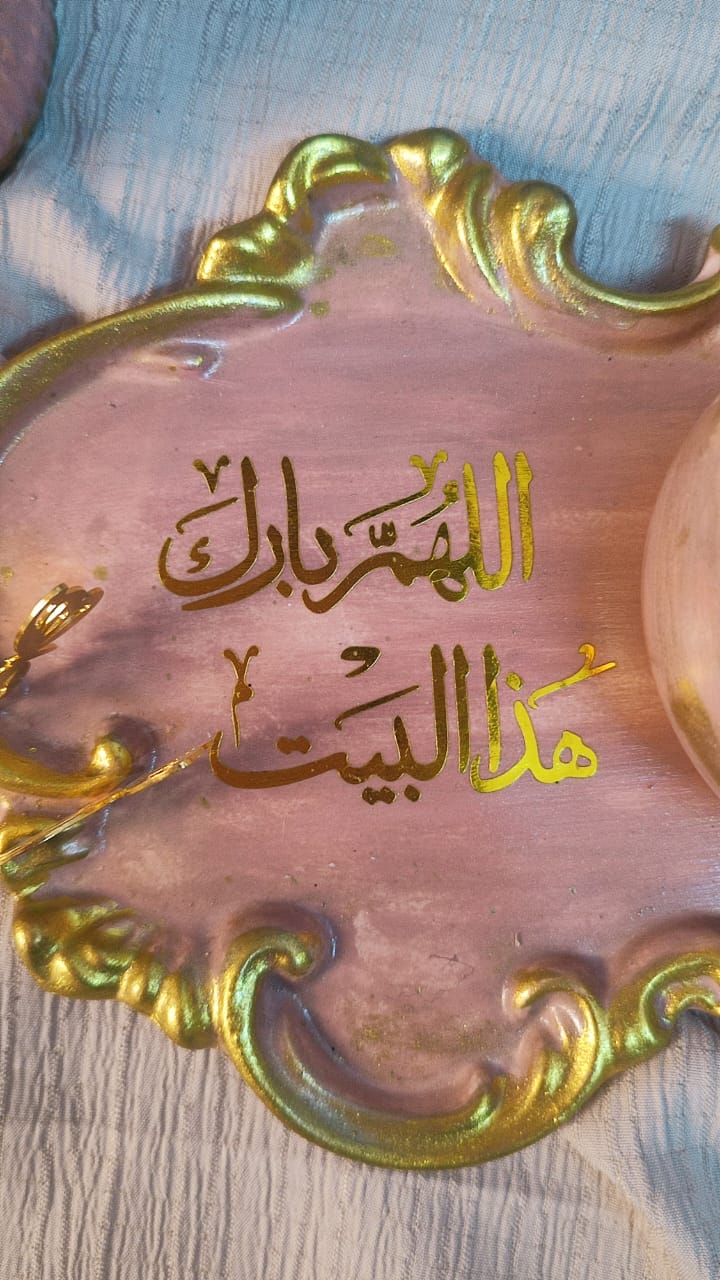 اللهُمَّ بارِكَ
هُذا البَيْت